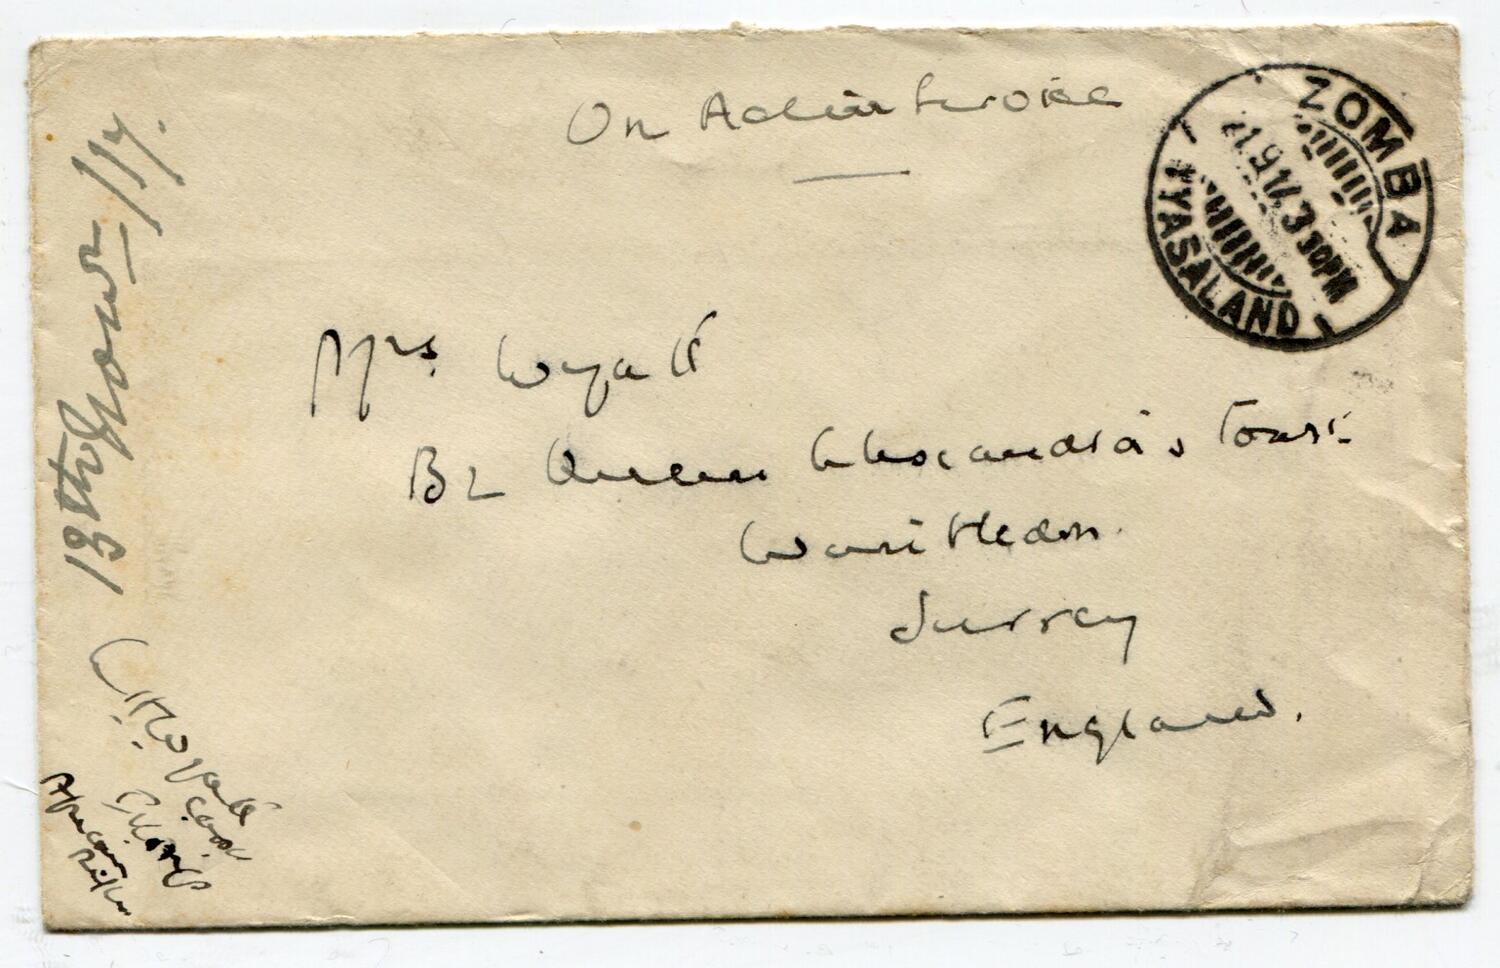 On Active Service
ZOMBA
21.9.17.3 30PM
NYASALAND
Mrs Wyatt
B2 Queen Alexandra's Court
Wimbledon.
Surrey
England.
13th Novr /17.
Wyatt
African Rifles